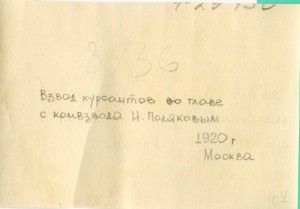 3/36
Взвод курсантов во главе
с комвзвода Н. Поляковым
1920 г
Москва